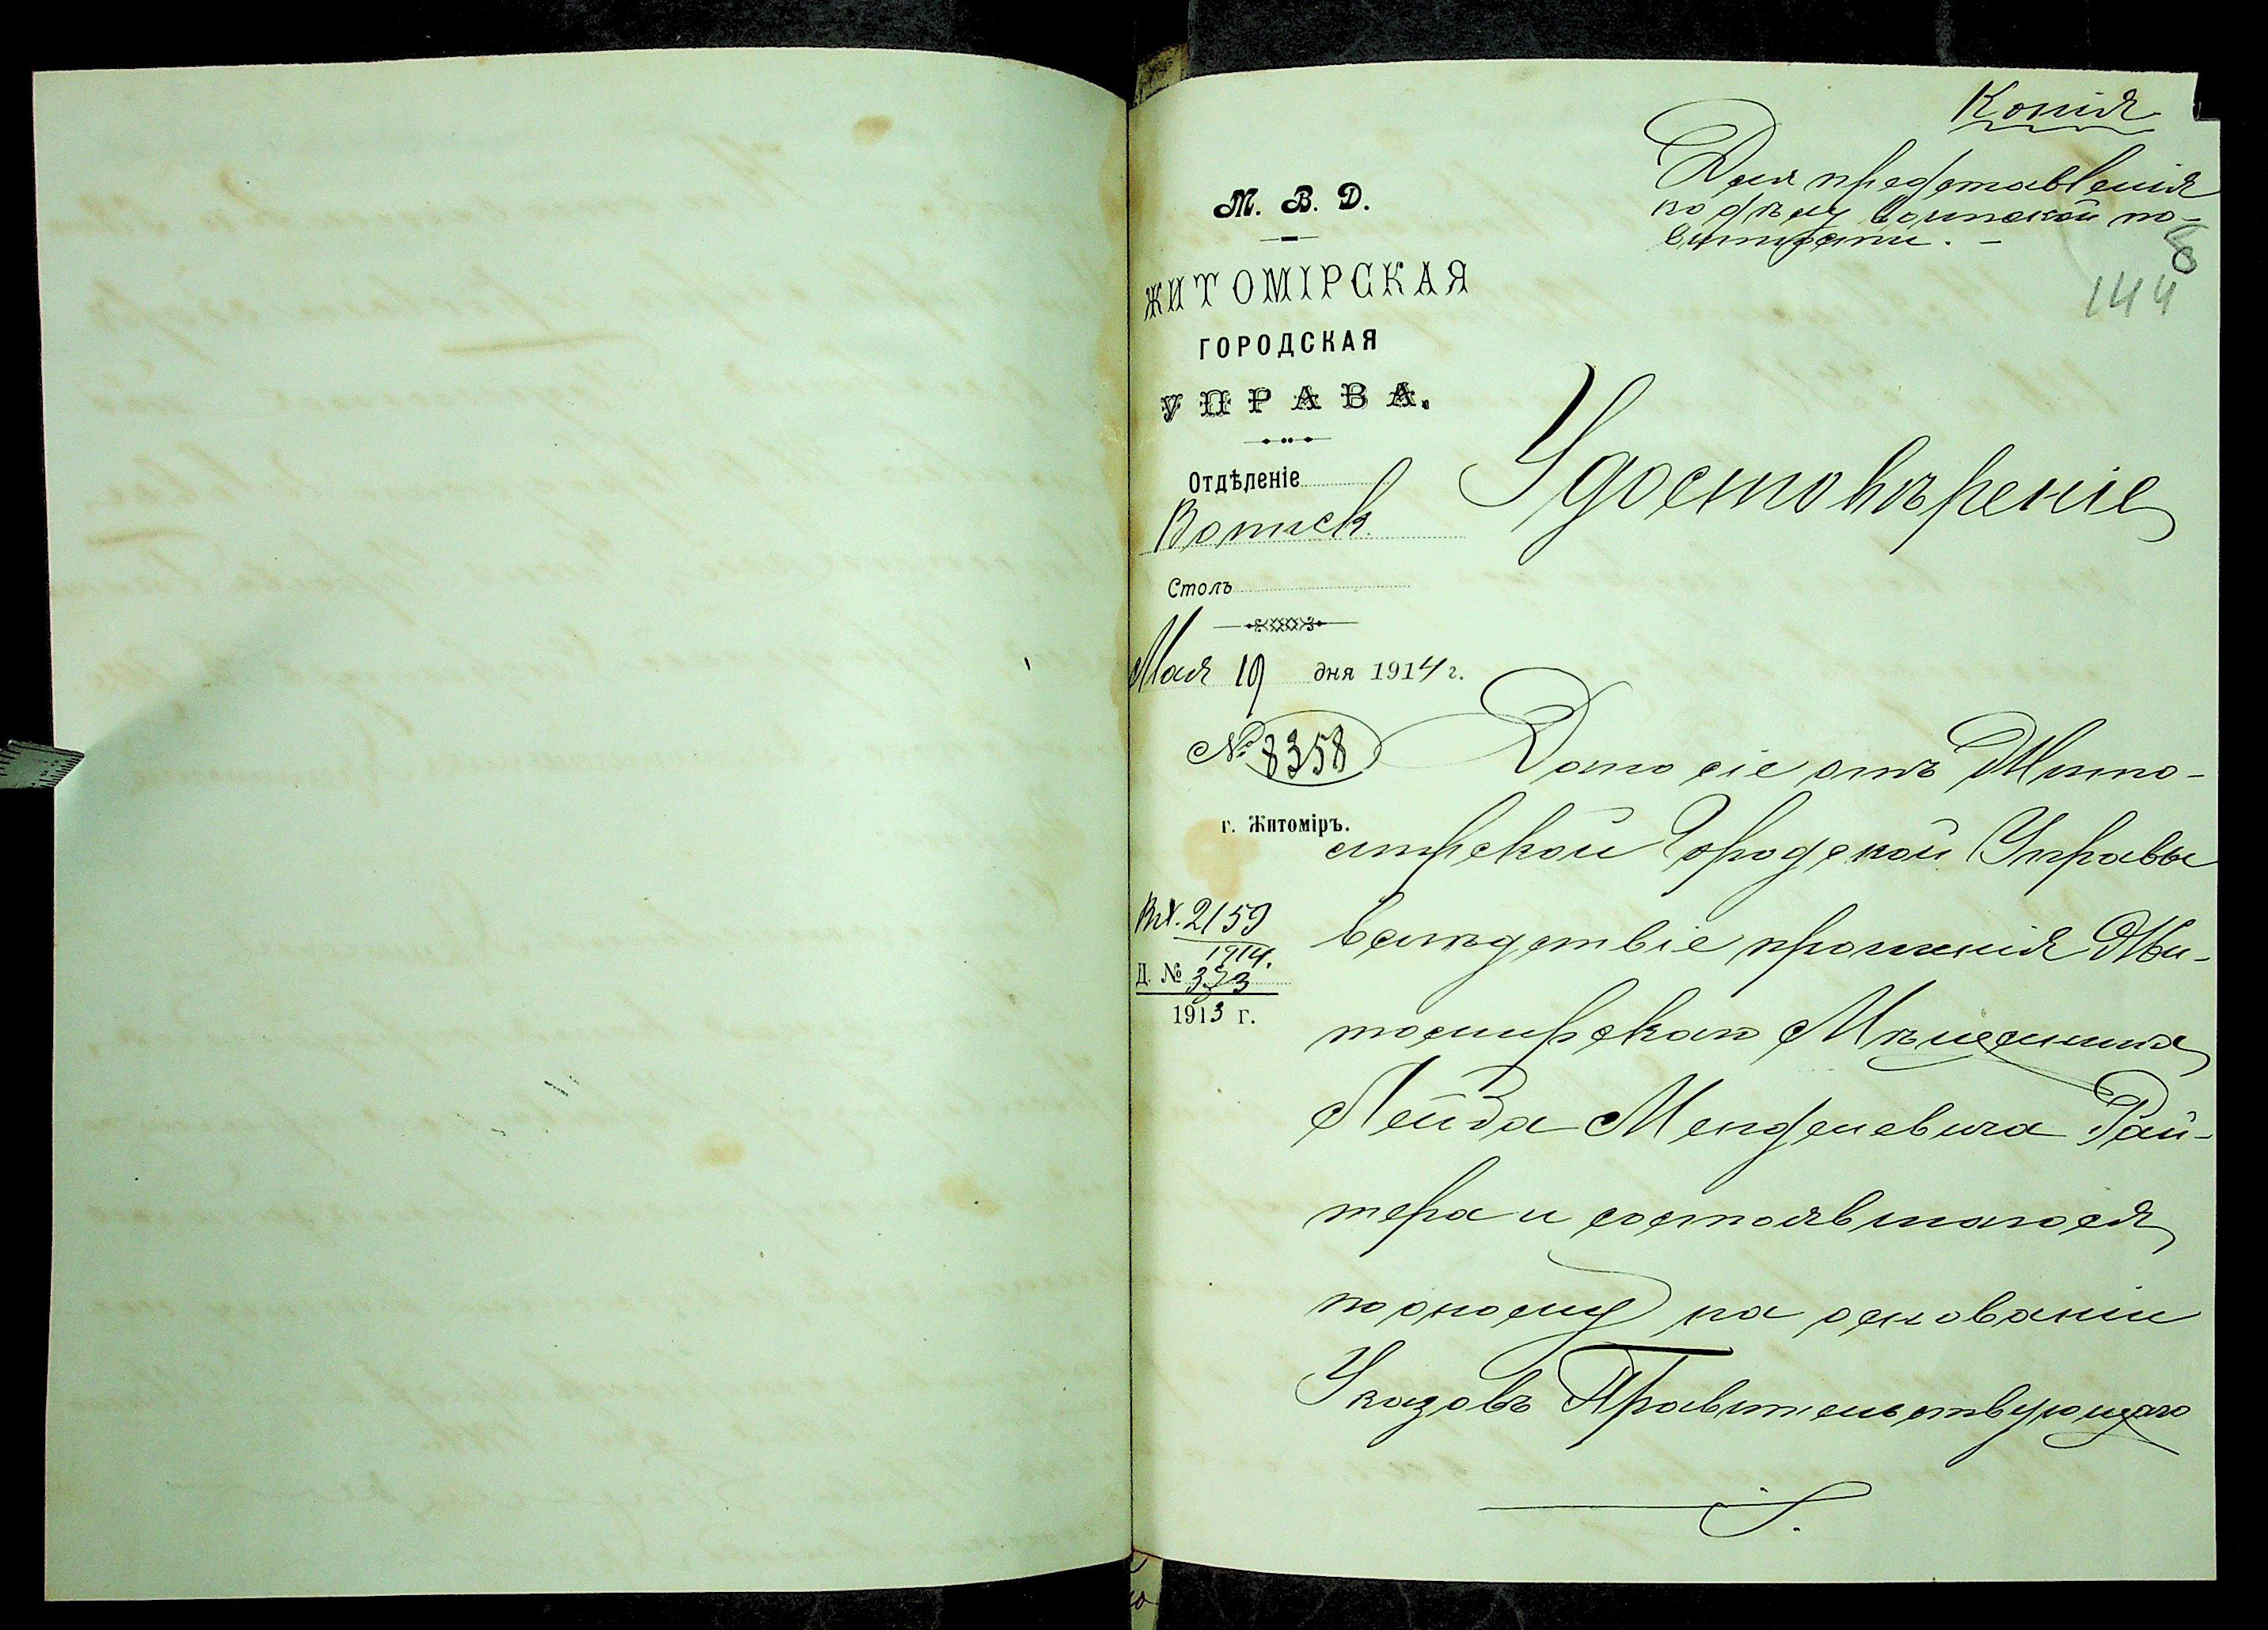 Копія
Для представленія
по дѣлу воинской по-
винности. –
8
144
М. В. Д.
ЖИТОМІРСКАЯ
ГОРОДСКАЯ
УПРАВА.
Отдѣленіе
Воинск.
Столъ
Мая 19 дня 1914 г.
№ 8358
г. Житоміръ.
Вх. 2159
1914.
Д. № 373
1913 г.
Удостовѣреніе
Дано сіе отъ Жито-
мирской Городской Управы
вслѣдствіе прошенія Жи-
томирскаго Мѣщанина
Лейба Менделевича Рай-
тера и состоявшагося
по оному на основаніи
Указовъ Правительствующаго